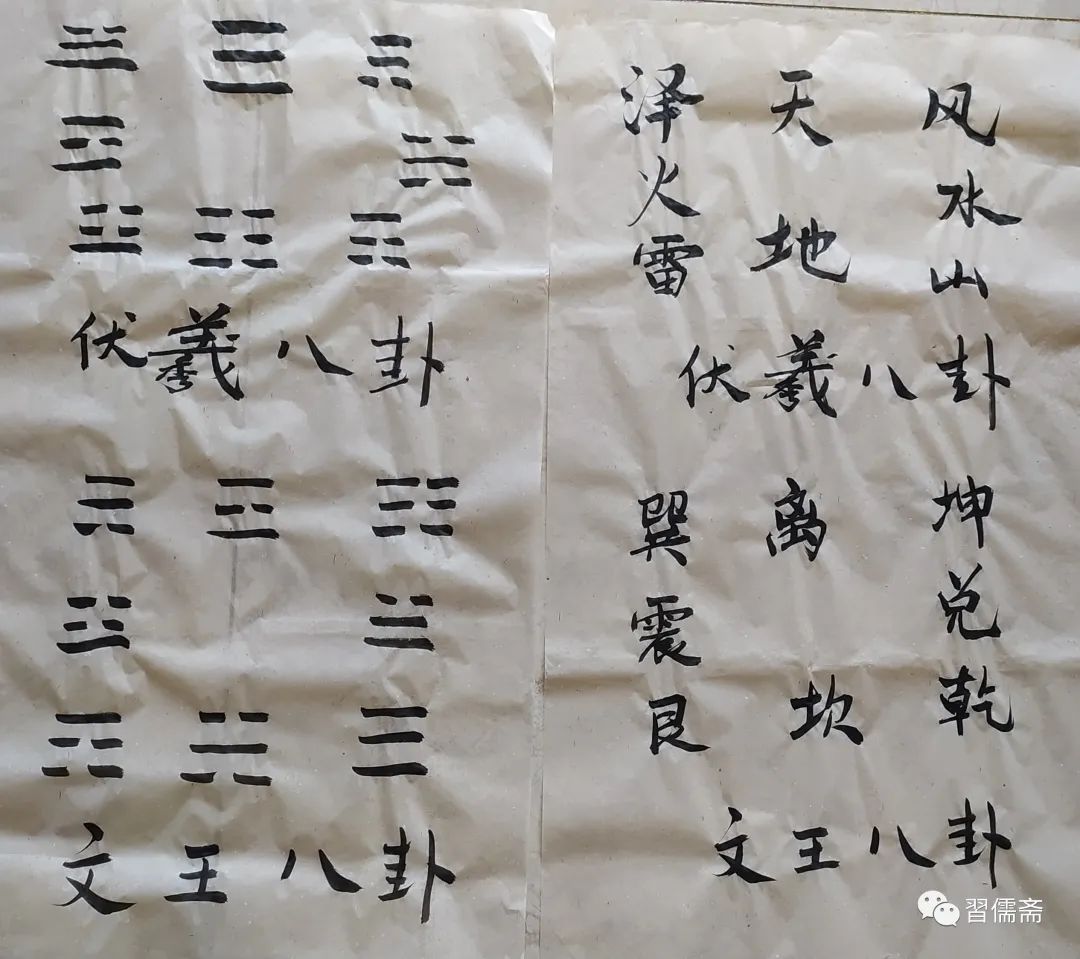 伏羲八卦
文王八卦
泽 天 风
火 水
雷 地 山
伏羲八卦
巽 离 坤
震 兑
艮 坎 乾
文王八卦
習儒斋